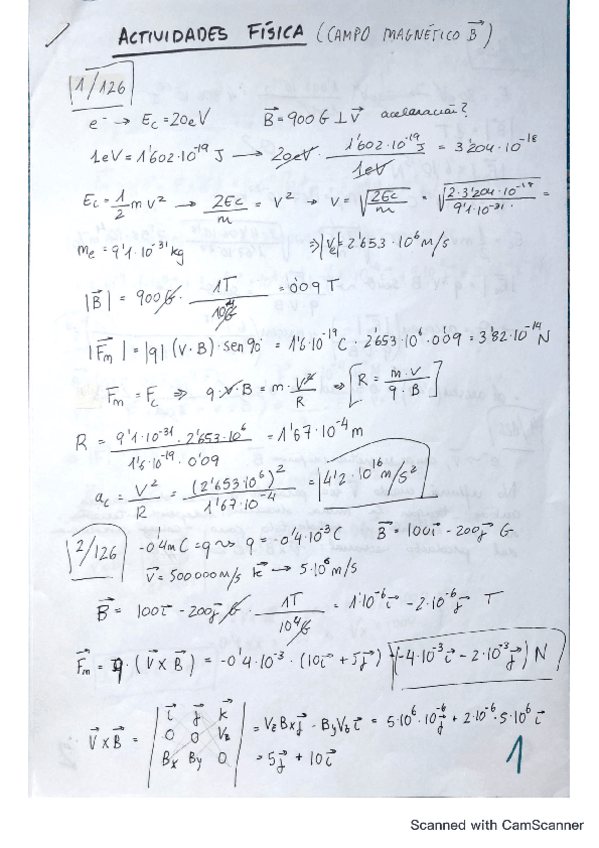 ACTIVIDADES FÍSICA (CAMPO MAGNÉTICO B⃗)
1/126
e⁻ → Ec = 20eV B⃗ = 900 G ⊥ v⃗ aceleración?
1eV = 1'602·10⁻¹⁹ J → 20eV · 1'602·10⁻¹⁹ J / 1eV = 3'204·10⁻¹⁸
Ec = 1/2 m v² → 2Ec/m = v² → v = √(2Ec/m) = √(2·3'204·10⁻¹⁸ / 9'1·10⁻³¹) =
me = 9'1·10⁻³¹ kg ⇒ |ve| = 2'653·10⁶ m/s
|B⃗| = 900 G · 1T / 10⁴ G = 0'09 T
|F⃗m| = |q| (v·B)·sen 90 = 1'6·10⁻¹⁹ C · 2'653·10⁶ · 0'09 = 3'82·10⁻¹⁴ N
Fm = Fc ⇒ q·v·B = m·v²/R ⇒ [R = m·v / q·B]
R = 9'1·10⁻³¹ · 2'653·10⁶ / 1'6·10⁻¹⁹ · 0'09 = 1'67·10⁻⁴ m
ac = v²/R = (2'653·10⁶)² / 1'67·10⁻⁴ = 4'2·10¹⁶ m/s²
2/126 -0'4mC = q ↝ q = -0'4·10⁻³ C B⃗ = 100i⃗ - 200j⃗ G
v⃗ = 500000 m/s k⃗ → 5·10⁶ m/s
B⃗ = 100i⃗ - 200j⃗ G · 1T / 10⁴ G = 1·10⁻⁶ i⃗ - 2·10⁻⁶ j⃗ T
F⃗m = q·(v⃗ x B⃗) = -0'4·10⁻³ · (10i⃗ + 5j⃗) = (-4·10⁻³ i⃗ - 2·10⁻³ j⃗) N
v⃗ x B⃗ = | i⃗ j⃗ k⃗ | = Vz Bx j⃗ - By Vz i⃗ = 5·10⁶·10⁻⁶ j⃗ + 2·10⁻⁶·5·10⁶ i⃗
0 0 Vz
Bx By 0 = 5j⃗ + 10i⃗
1
Scanned with CamScanner